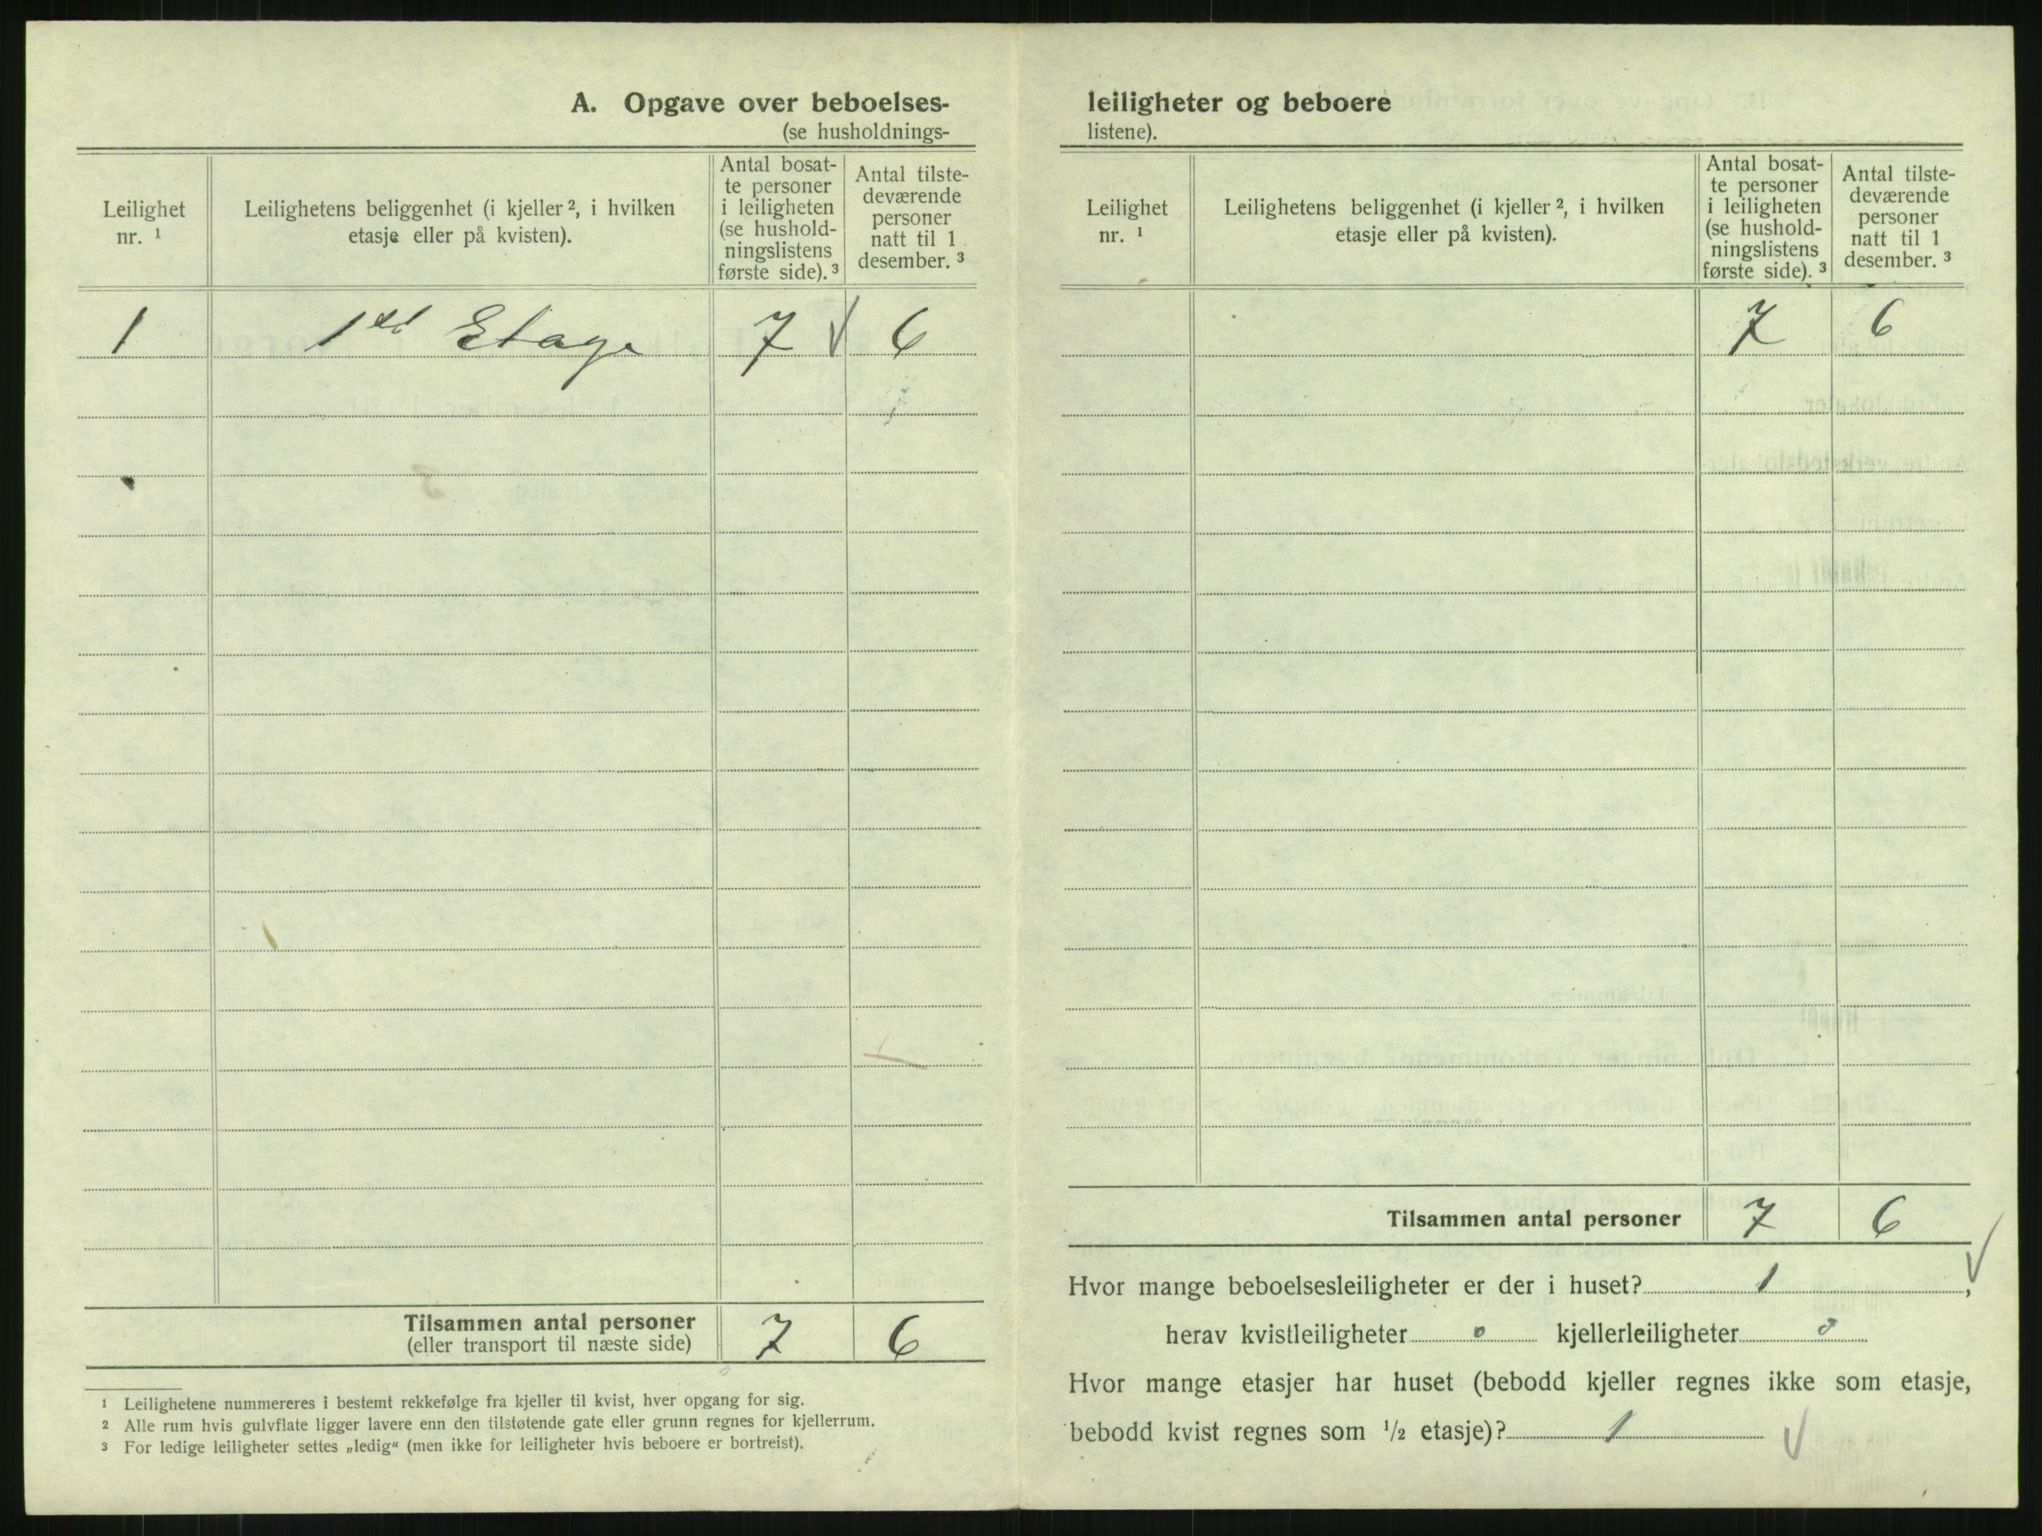 A. Opgave over beboelses-
(se husholdnings-
Leilighet
nr. ¹
Leilighetens beliggenhet (i kjeller ², i hvilken
etasje eller på kvisten).
Antal bosat-
te personer
i leiligheten
(se hushold-
ningslistens
første side). ³
Antal tilste-
deværende
personer
natt til 1
desember. ³
1 1ste Etage 7 6
Tilsammen antal personer 7 6
(eller transport til næste side)
¹ Leilighetene nummereres i bestemt rekkefølge fra kjeller til kvist, hver opgang for sig.
² Alle rum hvis gulvflate ligger lavere enn den tilstøtende gate eller grunn regnes for kjellerrum.
³ For ledige leiligheter settes „ledig“ (men ikke for leiligheter hvis beboere er bortreist).
leiligheter og beboere
listene).
Leilighet
nr. ¹
Leilighetens beliggenhet (i kjeller ², i hvilken
etasje eller på kvisten).
Antal bosat-
te personer
i leiligheten
(se hushold-
ningslistens
første side). ³
Antal tilste-
deværende
personer
natt til 1
desember. ³
7 6
Tilsammen antal personer 7 6
Hvor mange beboelsesleiligheter er der i huset? 1 ,
herav kvistleiligheter 0 kjellerleiligheter 0
Hvor mange etasjer har huset (bebodd kjeller regnes ikke som etasje,
bebodd kvist regnes som ½ etasje)? 1